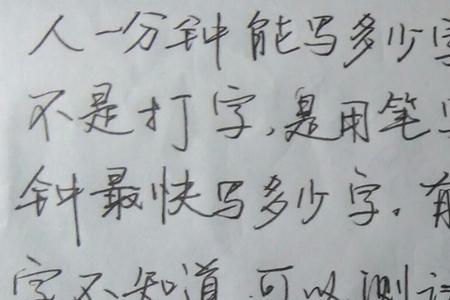 人一分钟能写多少字
不是打字,是用笔写
钟最快写多少字.有
字不知道,可以测试